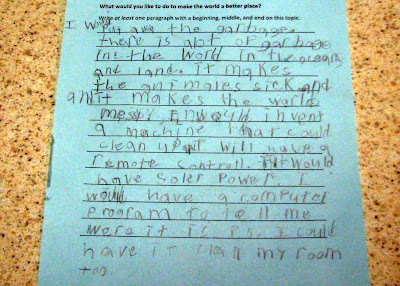 What would you like to do to make the world a better place?
Write at least one paragraph with a beginning, middle, and end on this topic.
I would
Put awa the garbage.
there is alot of garbage
in the World in the oceans
and land. it makes
the animales sick and
and it makes the world
messy, I would invent
a machine that could
clean up it will have a
remote control. It would
have soler power. I
would have a computer
program to tell me
were it is is. I could
have it clean my room
too.